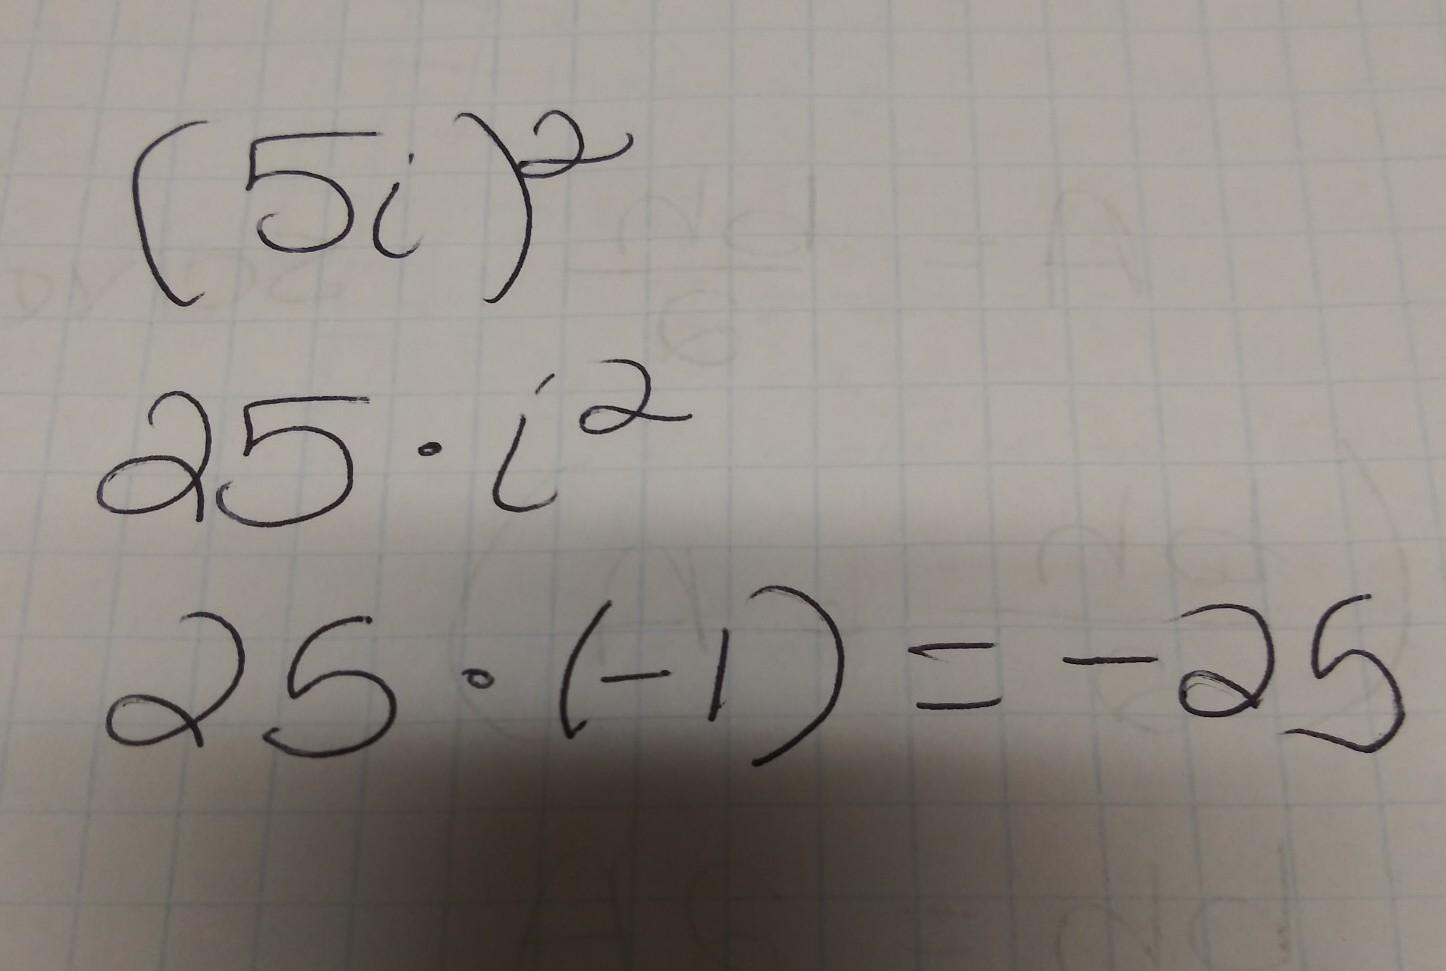 (5i)²
25 · i²
25 · (-1) = -25